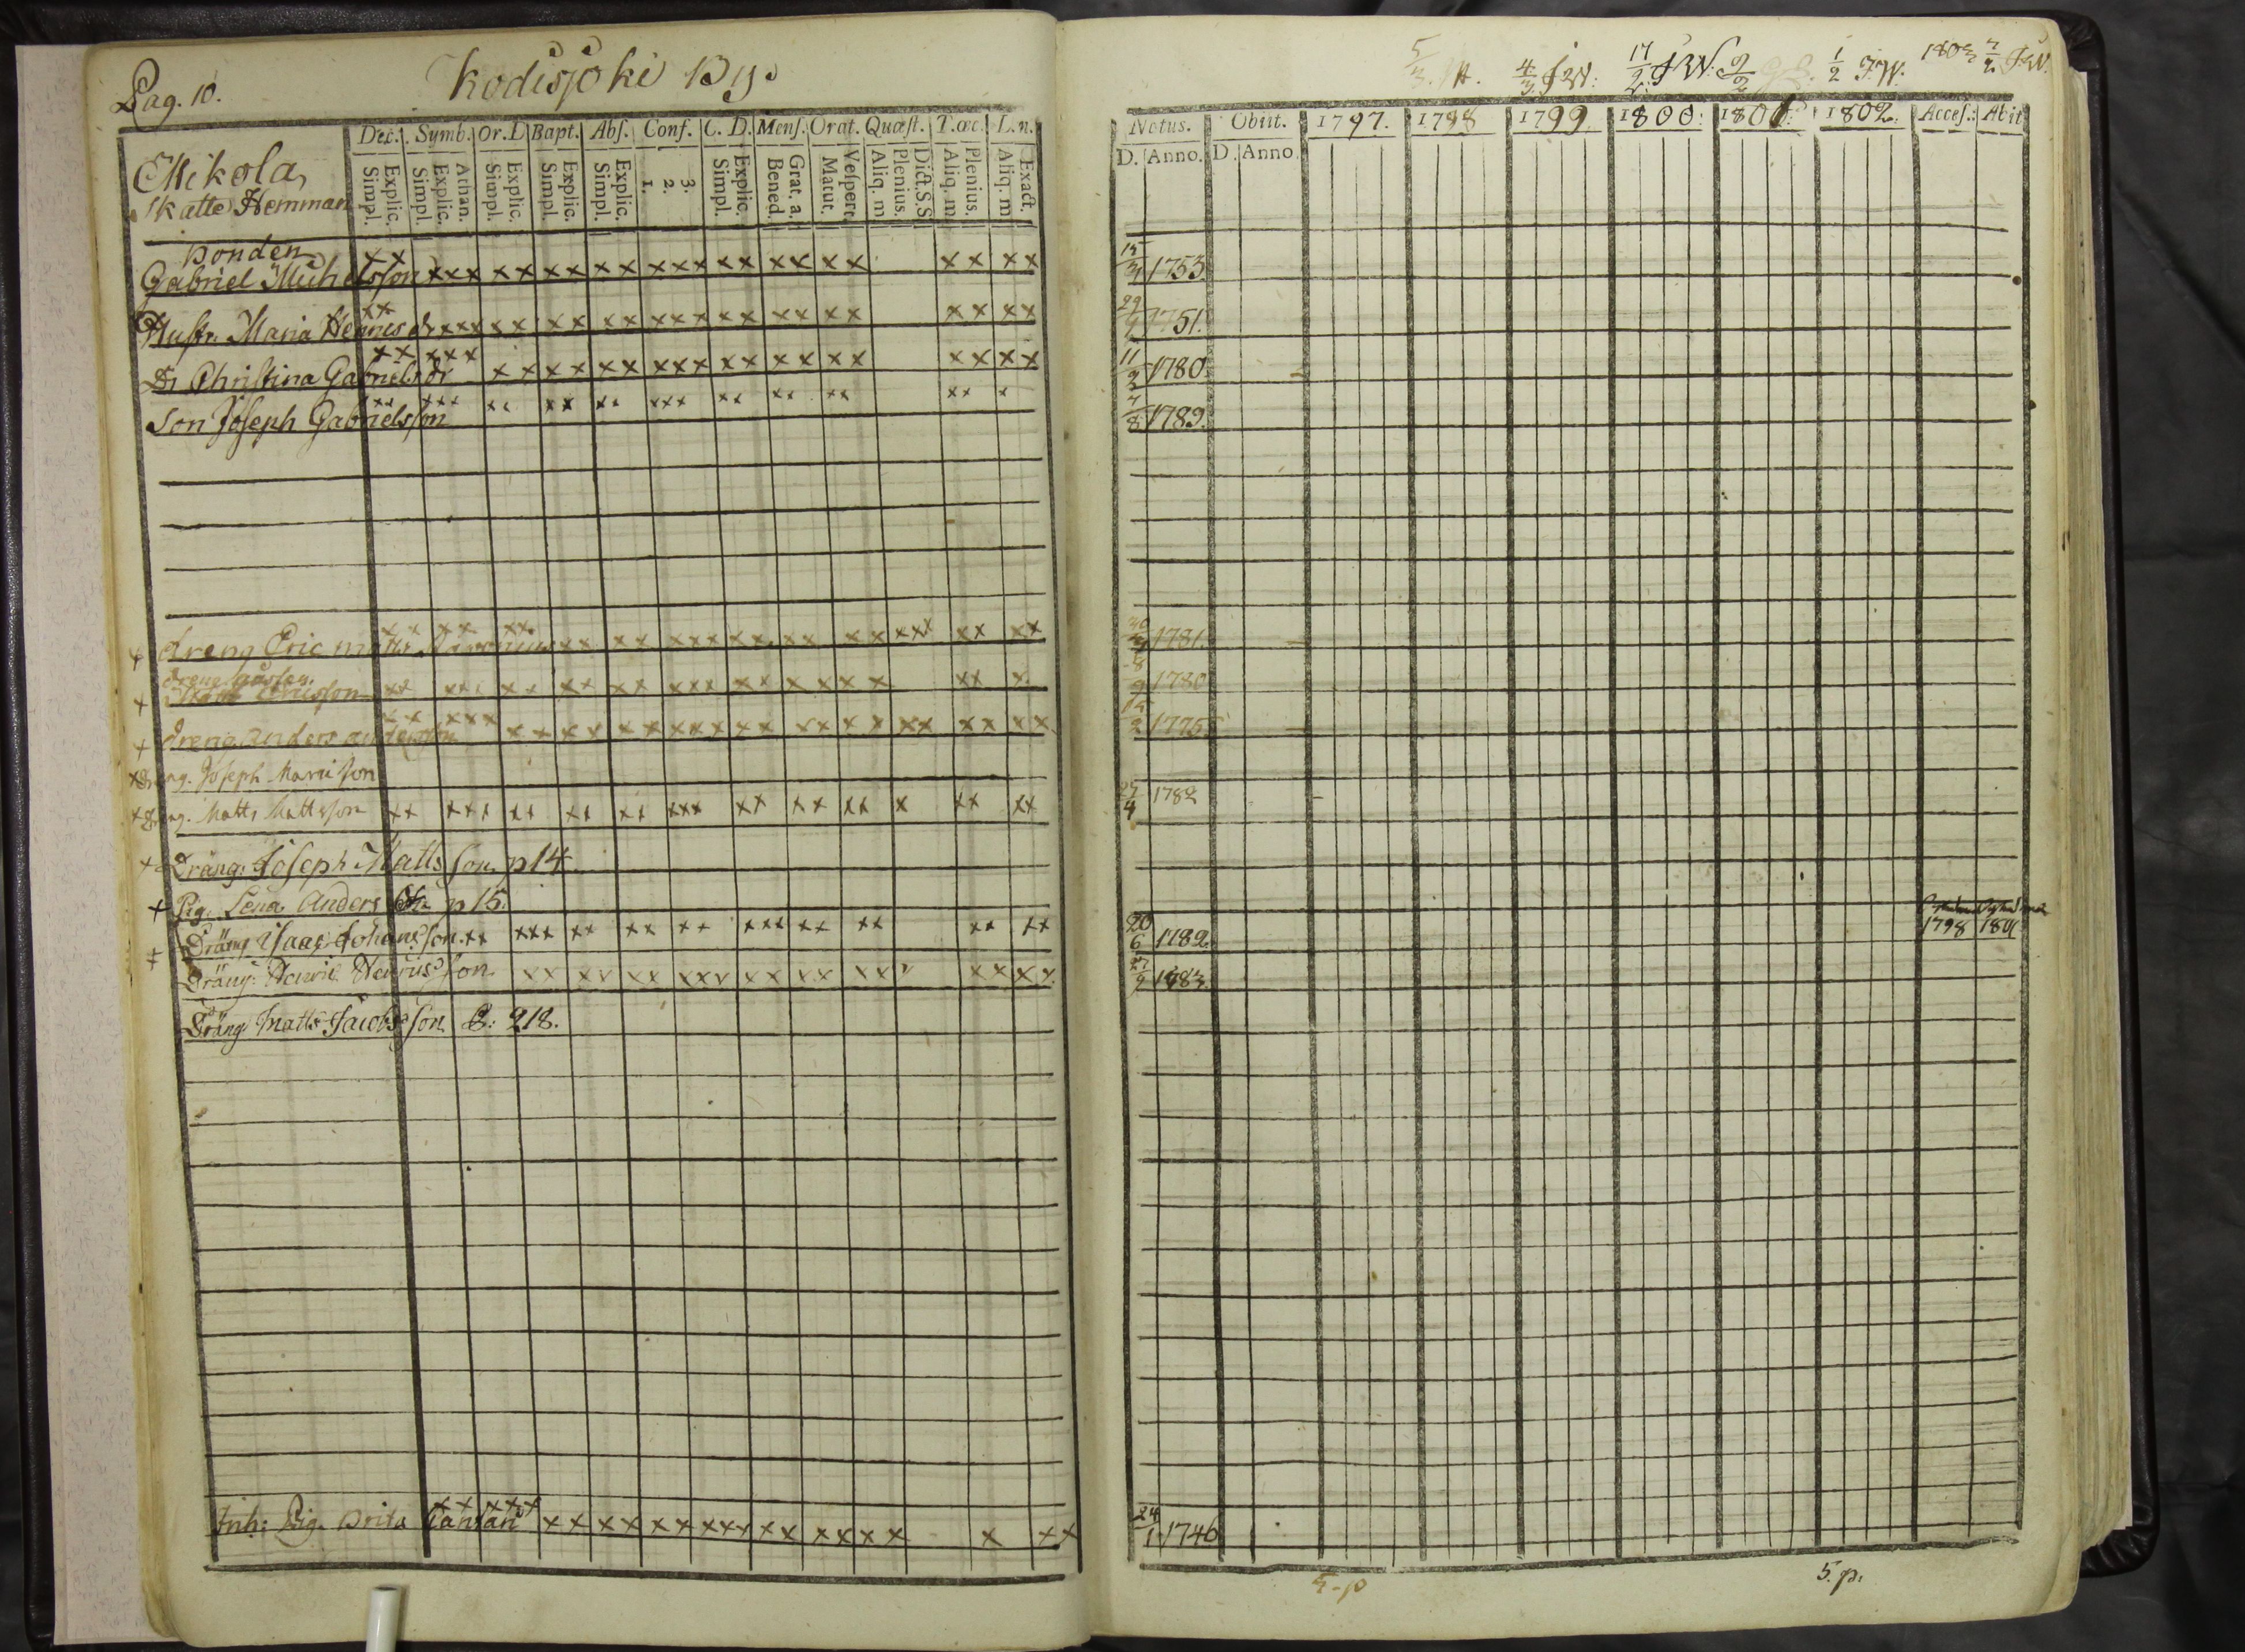 Pag. 10.
Kodisjoki By.
Mikola,
Skatte Hemman
Dec. Symb. Or.D Bapt. Abs. Conf. C. D. Mens. Orat. Quæst. T.œc. L.n.
Simpl. Explic. Simpl. Explic. Athan. Simpl. Explic. Simpl. Explic. Simpl. Explic. 1. 2. 3. Simpl. Explic. Bened. Grat. a. Matut. Vespert. Aliq. m Plenius. Dict.S.S Aliq. m. Plenius. Aliq. m Exact.
Bonden
Gabriel Michelsson xx xxx xx xx xx xxx xx xx xx xx xx
Hustr. Maria Henricsdr xx xxx xx xx xx xxx xx xx xx xx xx
Dr Christina Gabrielsdr xx xxx xx xx xx xxx xx xx xx xx xx
Son Joseph Gabrielsson xx xxx xx xx xx xxx xx xx xx xx x
+ dreng Eric Matts xx xx xx xx xx xxx xx xx xx xxx xx xx
dreng Gustav
+ xx xxx xx xx xx xxx xx x x x x xx x
+ dreng Anders Andersson xx xxx xx xx xx xxx xx xx xx xx xx xx
+ Dreng. Joseph
+ Dreng. Matts Mattsson xx xxx xx xx xx xxx xx xx xx x xx xx
+ Dräng: Joseph Matts son. p 14
+ Pig. Lena Anders dr p 15.
Dräng Isaac Johans son. xx xxx xx xx xx xxx xx xx xx xx
+ Dräng: Henric Henrics son xx xx xx xxx xx xx xxx xx xx
Dräng Matts Jacobs son P: 218.
Inh: Pig. Brita xx xxx xx xx xx xxx xx xx xx x xx
5/3. 4/3 JW: 17/2: JW: 2/2 1/2 JW. 1803 JW.
Natus. Obiit. 1797. 1798 1799 1800: 1801: 1802. Acces.: Abiit
D. Anno. D. Anno.
1753
1751.
11 1780.
7/8 1789.
30 1781.
8/9 1780
15/2 1775
27/4 1782
20/6 1782. 1798 1801
27/9 1783.
24/1 1746
5.p. 5.p.